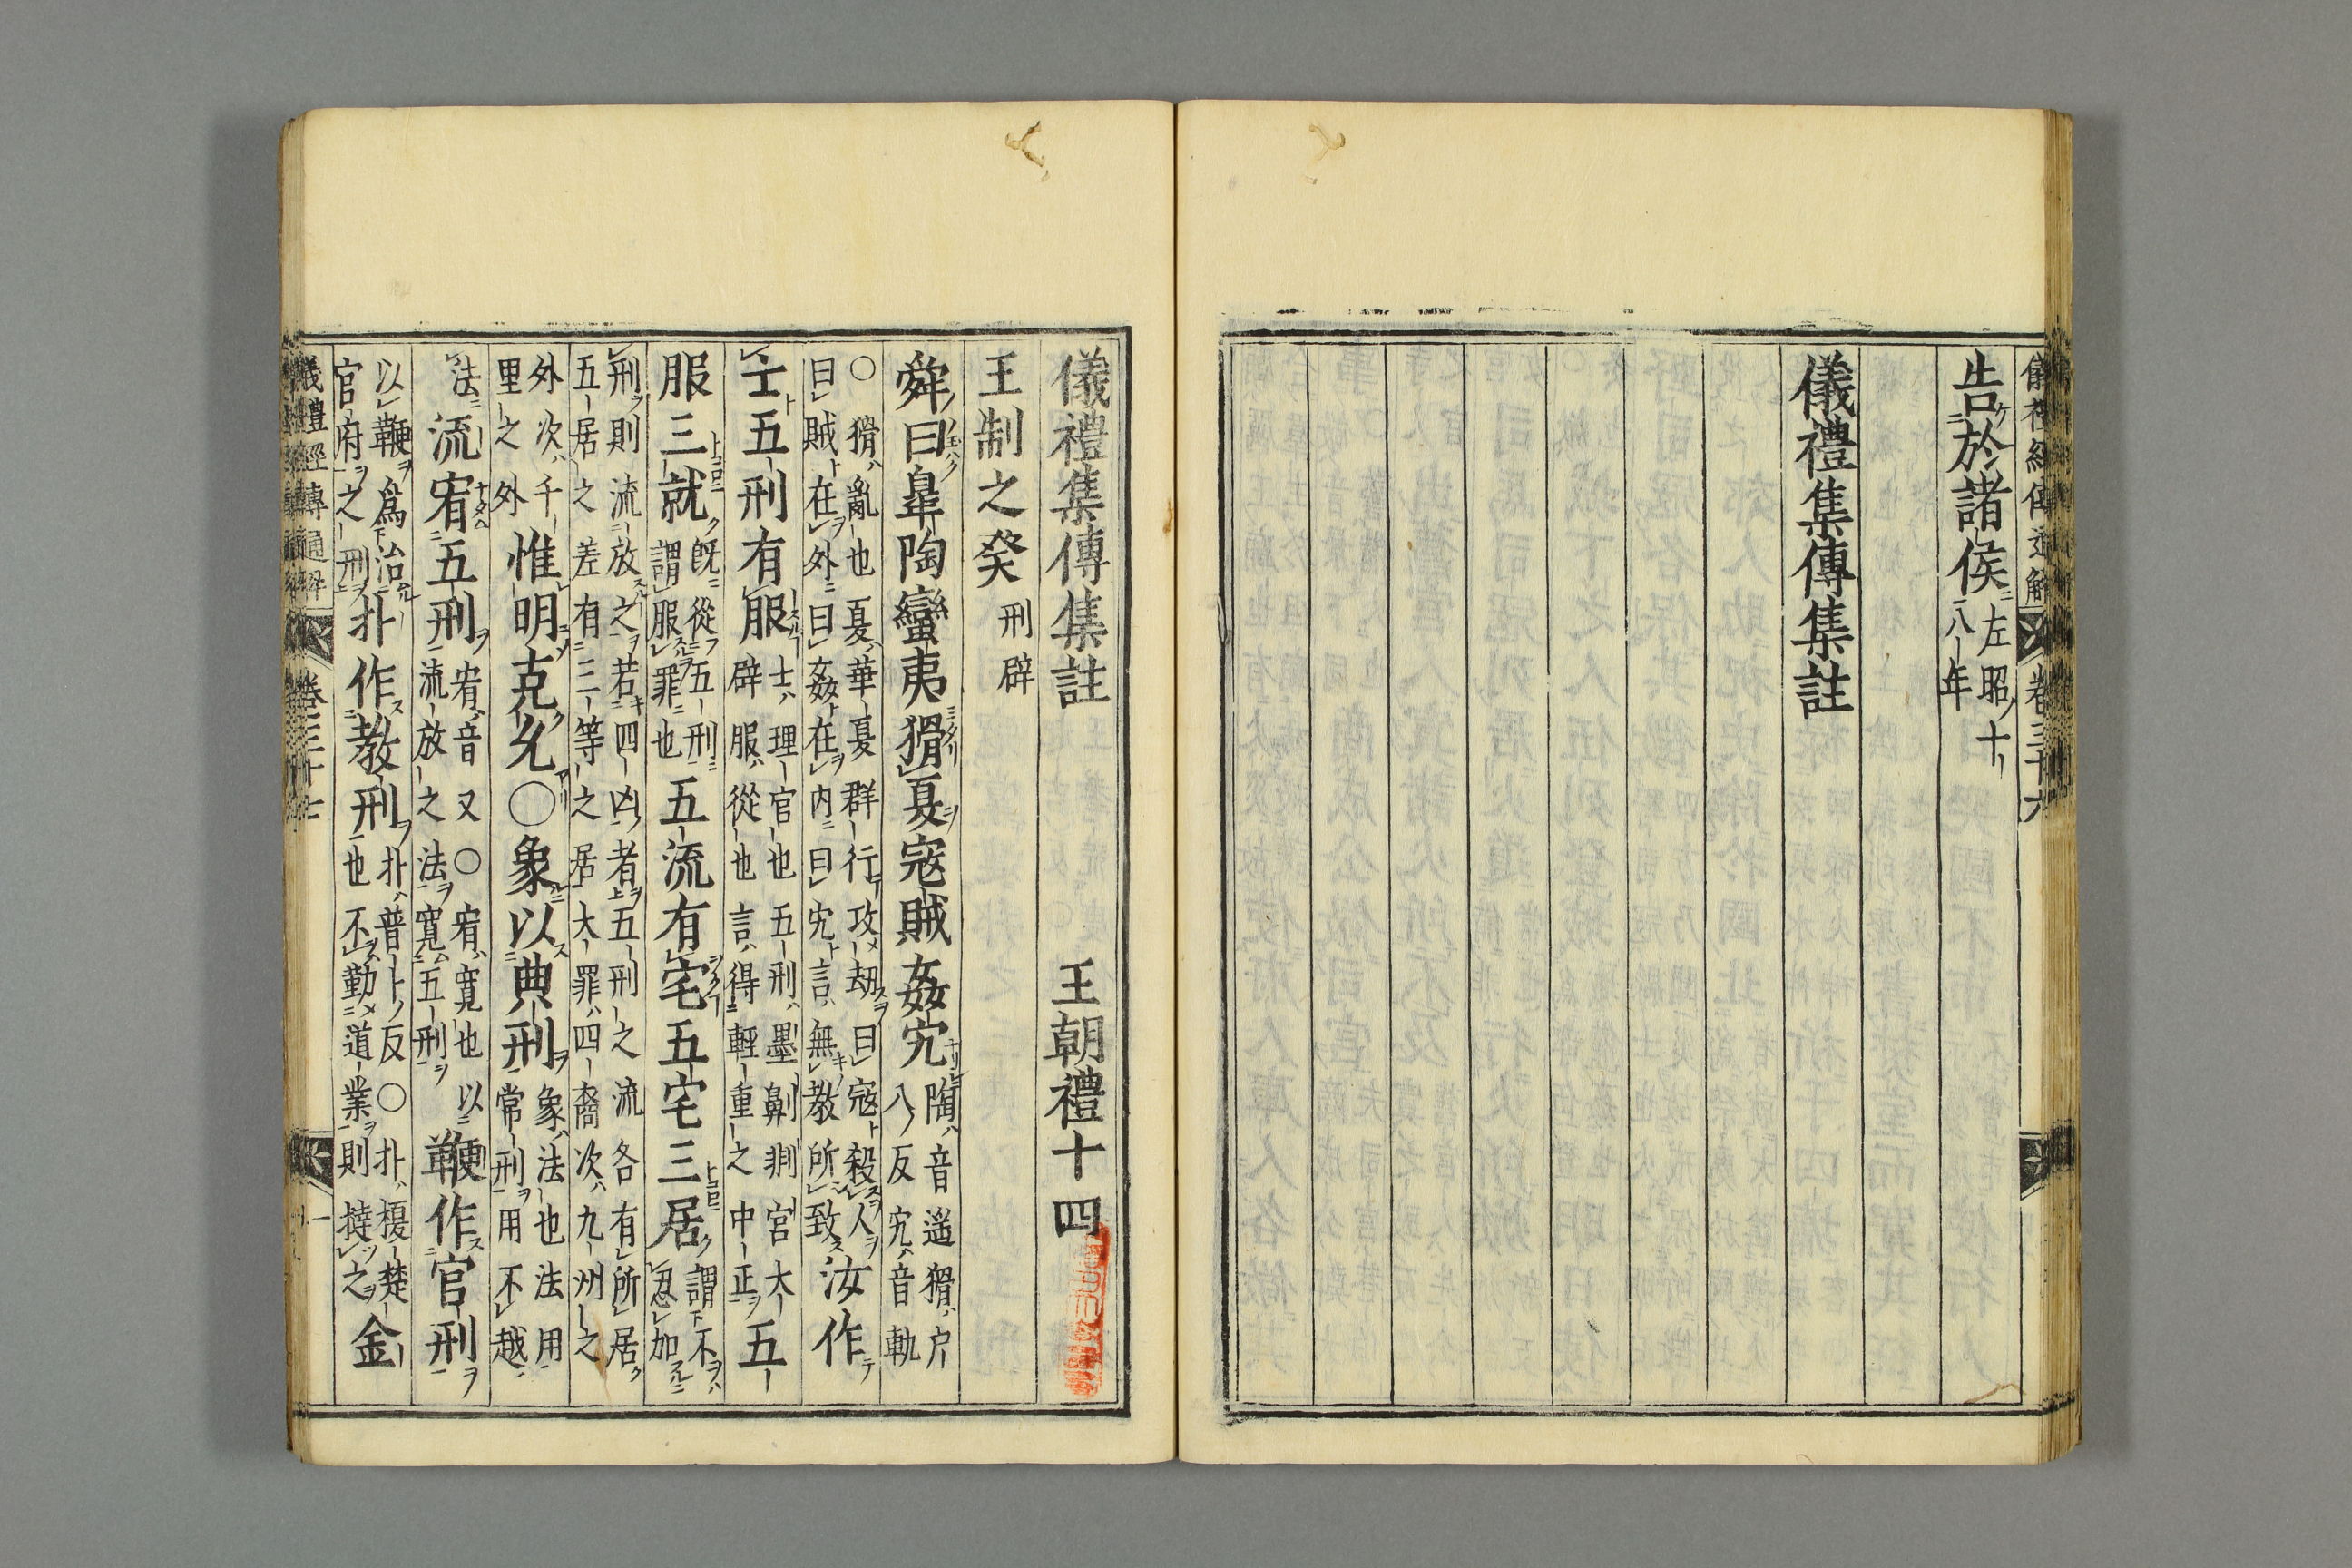 儀禮經傳通解 卷三十六
告於諸侯 左昭十八年
儀禮集傳集註
儀禮集傳集註 王朝禮十四
王制之癸 刑辟
舜曰皐陶蠻夷猾夏寇賊姦宄 陶音遥猾户八反宄音軌
○猾亂也夏華夏群行攻劫曰寇殺人曰賊在外曰姦在内曰宄言無教所致 汝作
士五刑有服 士理官也五刑墨劓剕宫大辟服從也言得輕重之中正 五
服三就 既從五刑謂服罪也 五流有宅五宅三居 謂不忍加
刑則流放之若四凶者五刑之流各有所居五居之差有三等之居大罪四裔次九州之
外次千里之外 惟明克允○象以典刑 象法也法用常刑用不越
法 流宥五刑 宥音又○宥寛也以流放之法寛五刑 鞭作官刑
以鞭爲治官府之刑 扑作教刑 扑普卜反○扑榎楚也不勤道業則撻之 金
儀禮經傳通解 卷三十七 一